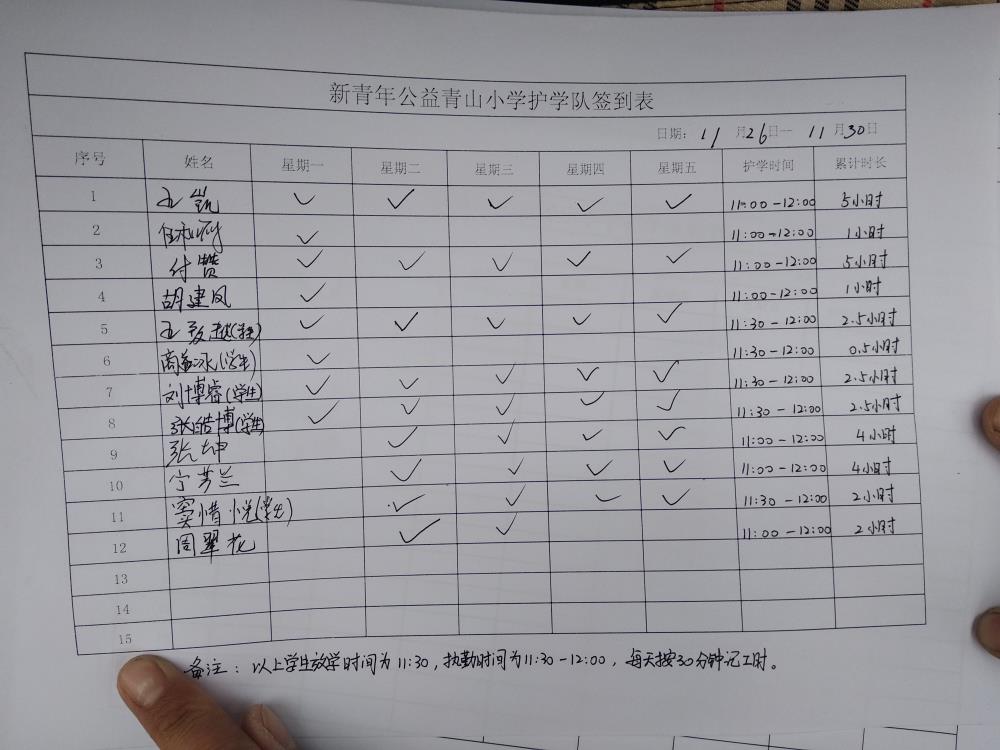 新青年公益青山小学护学队签到表
日期: 11 月 26 日— 11 月 30 日
序号 姓名 星期一 星期二 星期三 星期四 星期五 护学时间 累计时长
1 ✓ ✓ ✓ ✓ ✓ 11:00-12:00 5小时
2 ✓ 11:00-12:00 1小时
3 付赞 ✓ ✓ ✓ ✓ ✓ 11:00-12:00 5小时
4 胡建凤 ✓ 11:00-12:00 1小时
5 ✓ ✓ ✓ ✓ ✓ 11:30-12:00 2.5小时
6 (学生) ✓ 11:30-12:00 0.5小时
7 刘博睿(学生) ✓ ✓ ✓ ✓ ✓ 11:30-12:00 2.5小时
8 张皓博(学生) ✓ ✓ ✓ ✓ ✓ 11:30-12:00 2.5小时
9 张坤 ✓ ✓ ✓ ✓ 11:00-12:00 4小时
10 宁芳兰 ✓ ✓ ✓ ✓ 11:00-12:00 4小时
11 窦惜悦(学生) ✓ ✓ ✓ ✓ 11:30-12:00 2小时
12 周翠花 ✓ ✓ 11:00-12:00 2小时
13
14
15
备注：以上学生放学时间为11:30,执勤时间为11:30-12:00，每天按30分钟记工时。